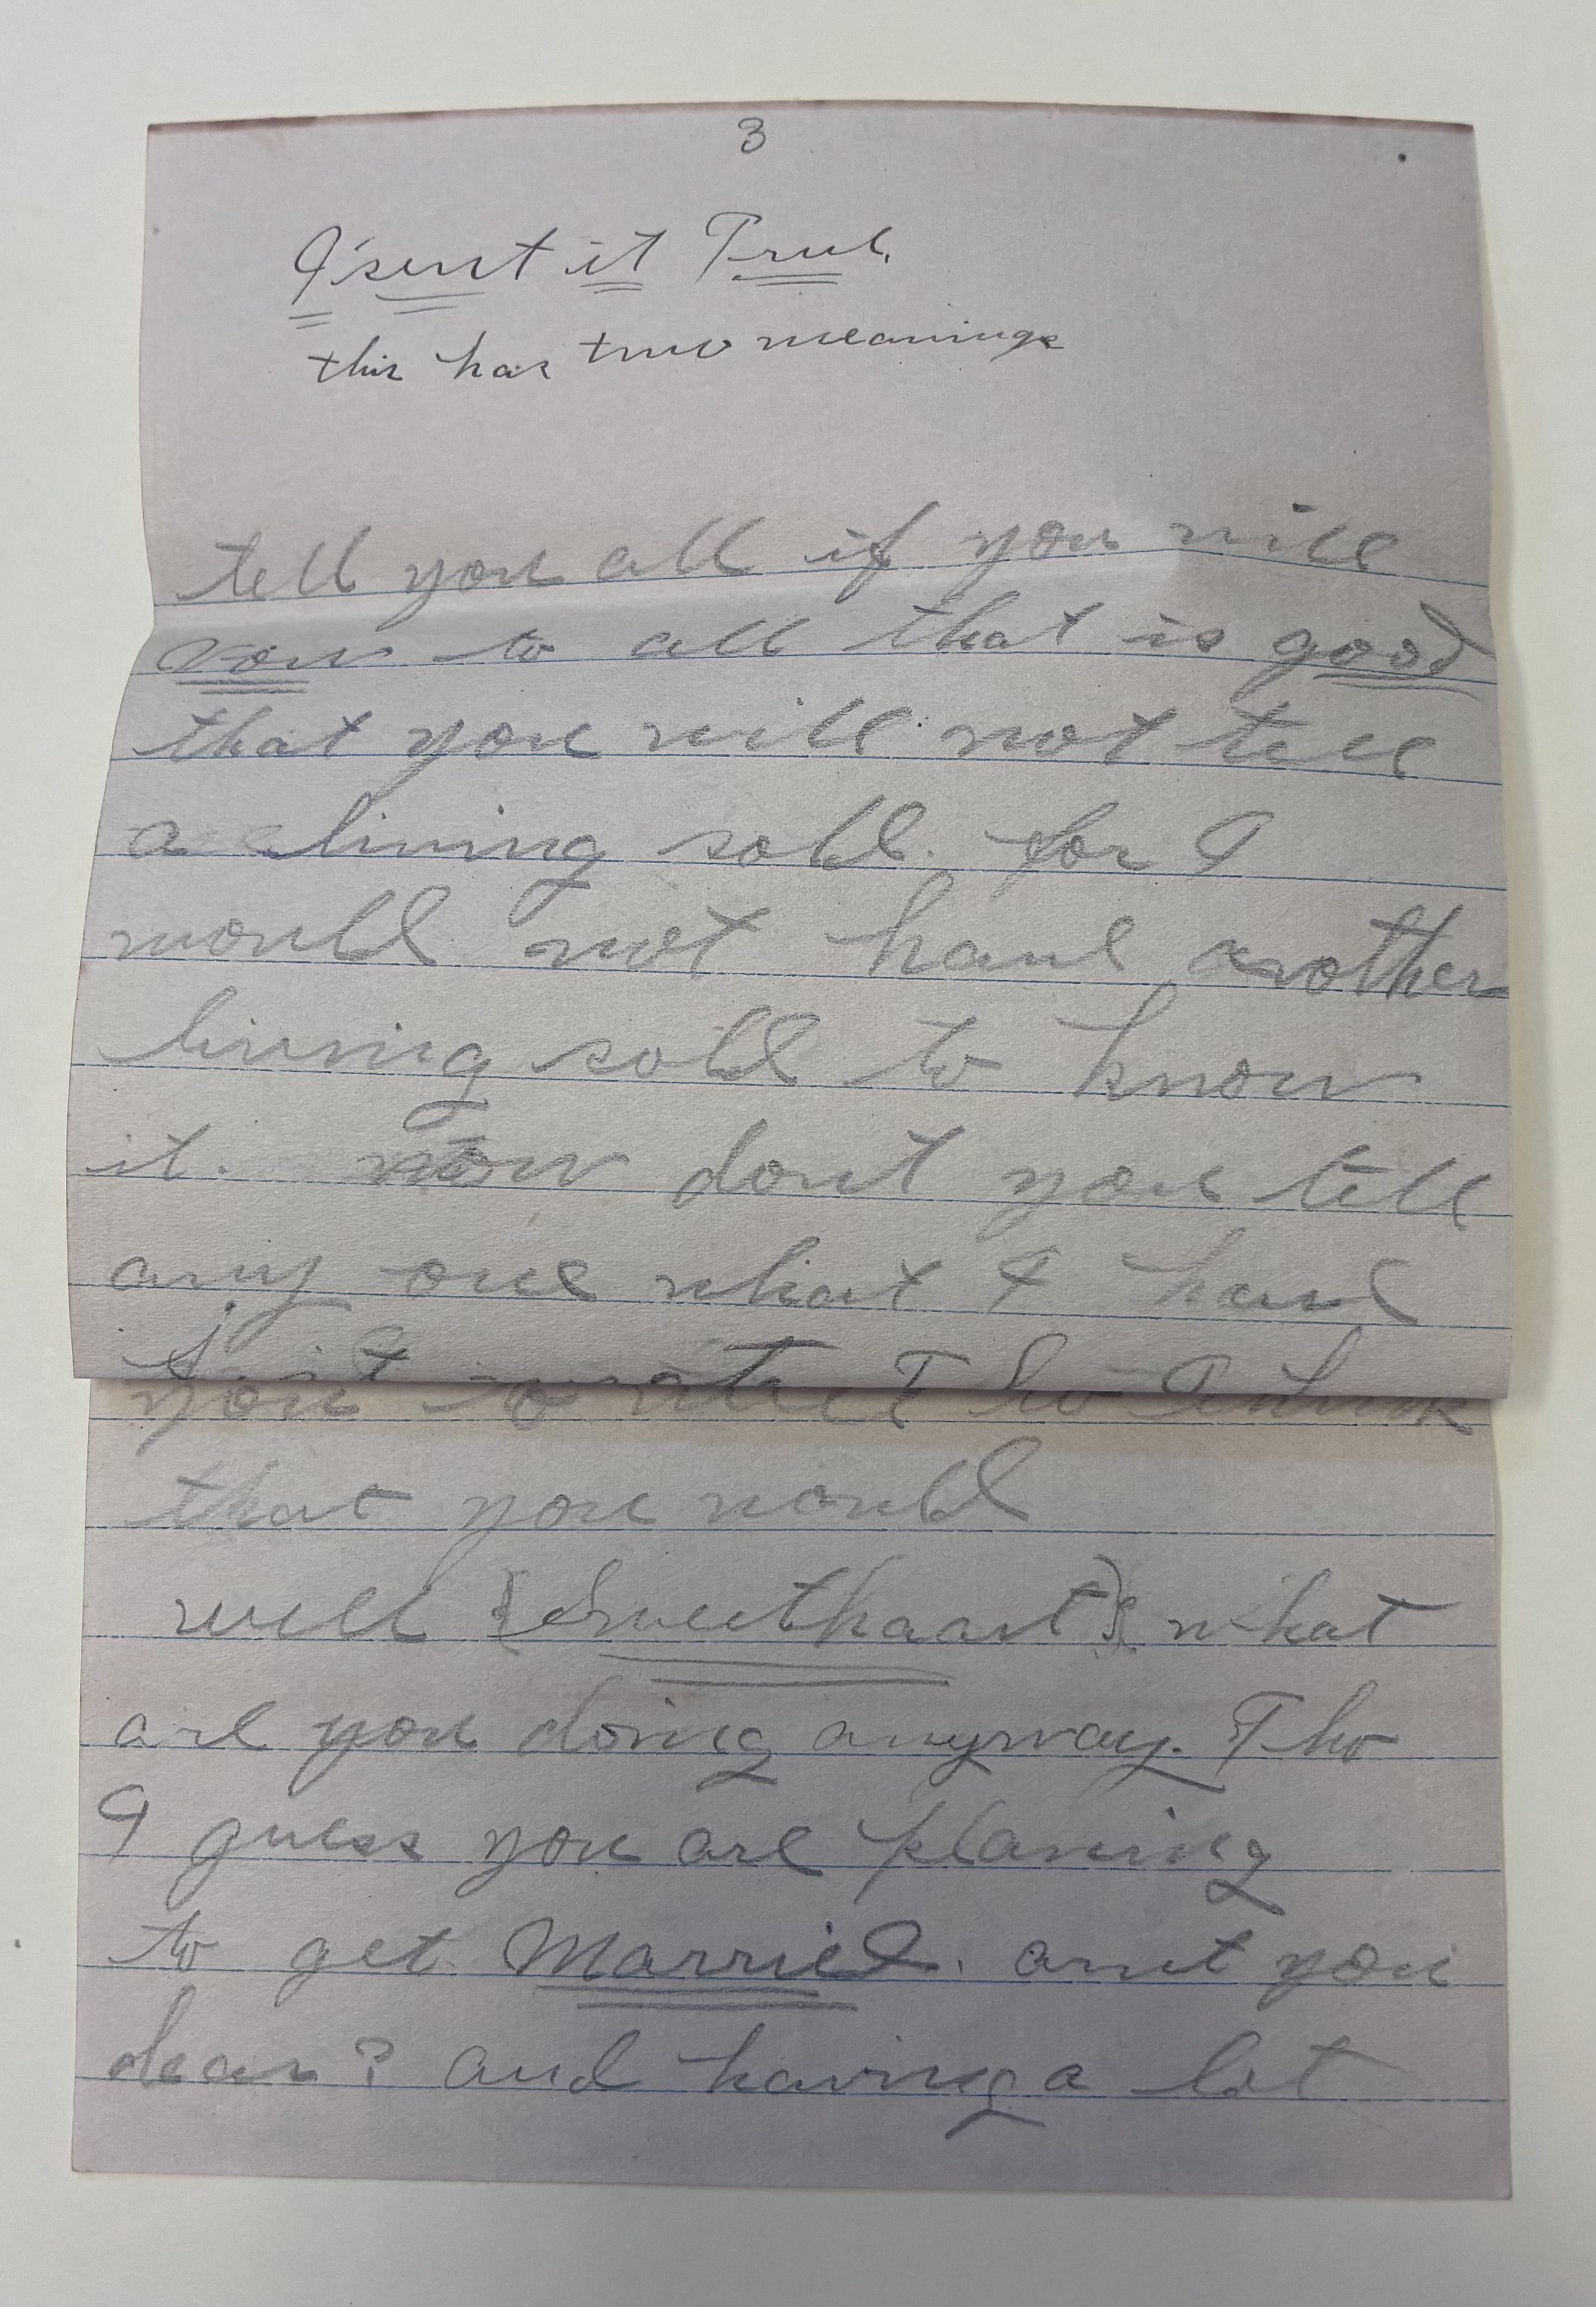 3
I'sent it True.
this has two meanings
tell you all if you will
vow to all that is good
that you will not tell
a living soll. for I
would not have another
living soll to know
it. now dont you tell
any one what I have
Tho I think
that you would
well {Sweethaart} what
are you doing anyway. Tho
I guess you are planing
to get Married. arnt you
dear? and having a lot